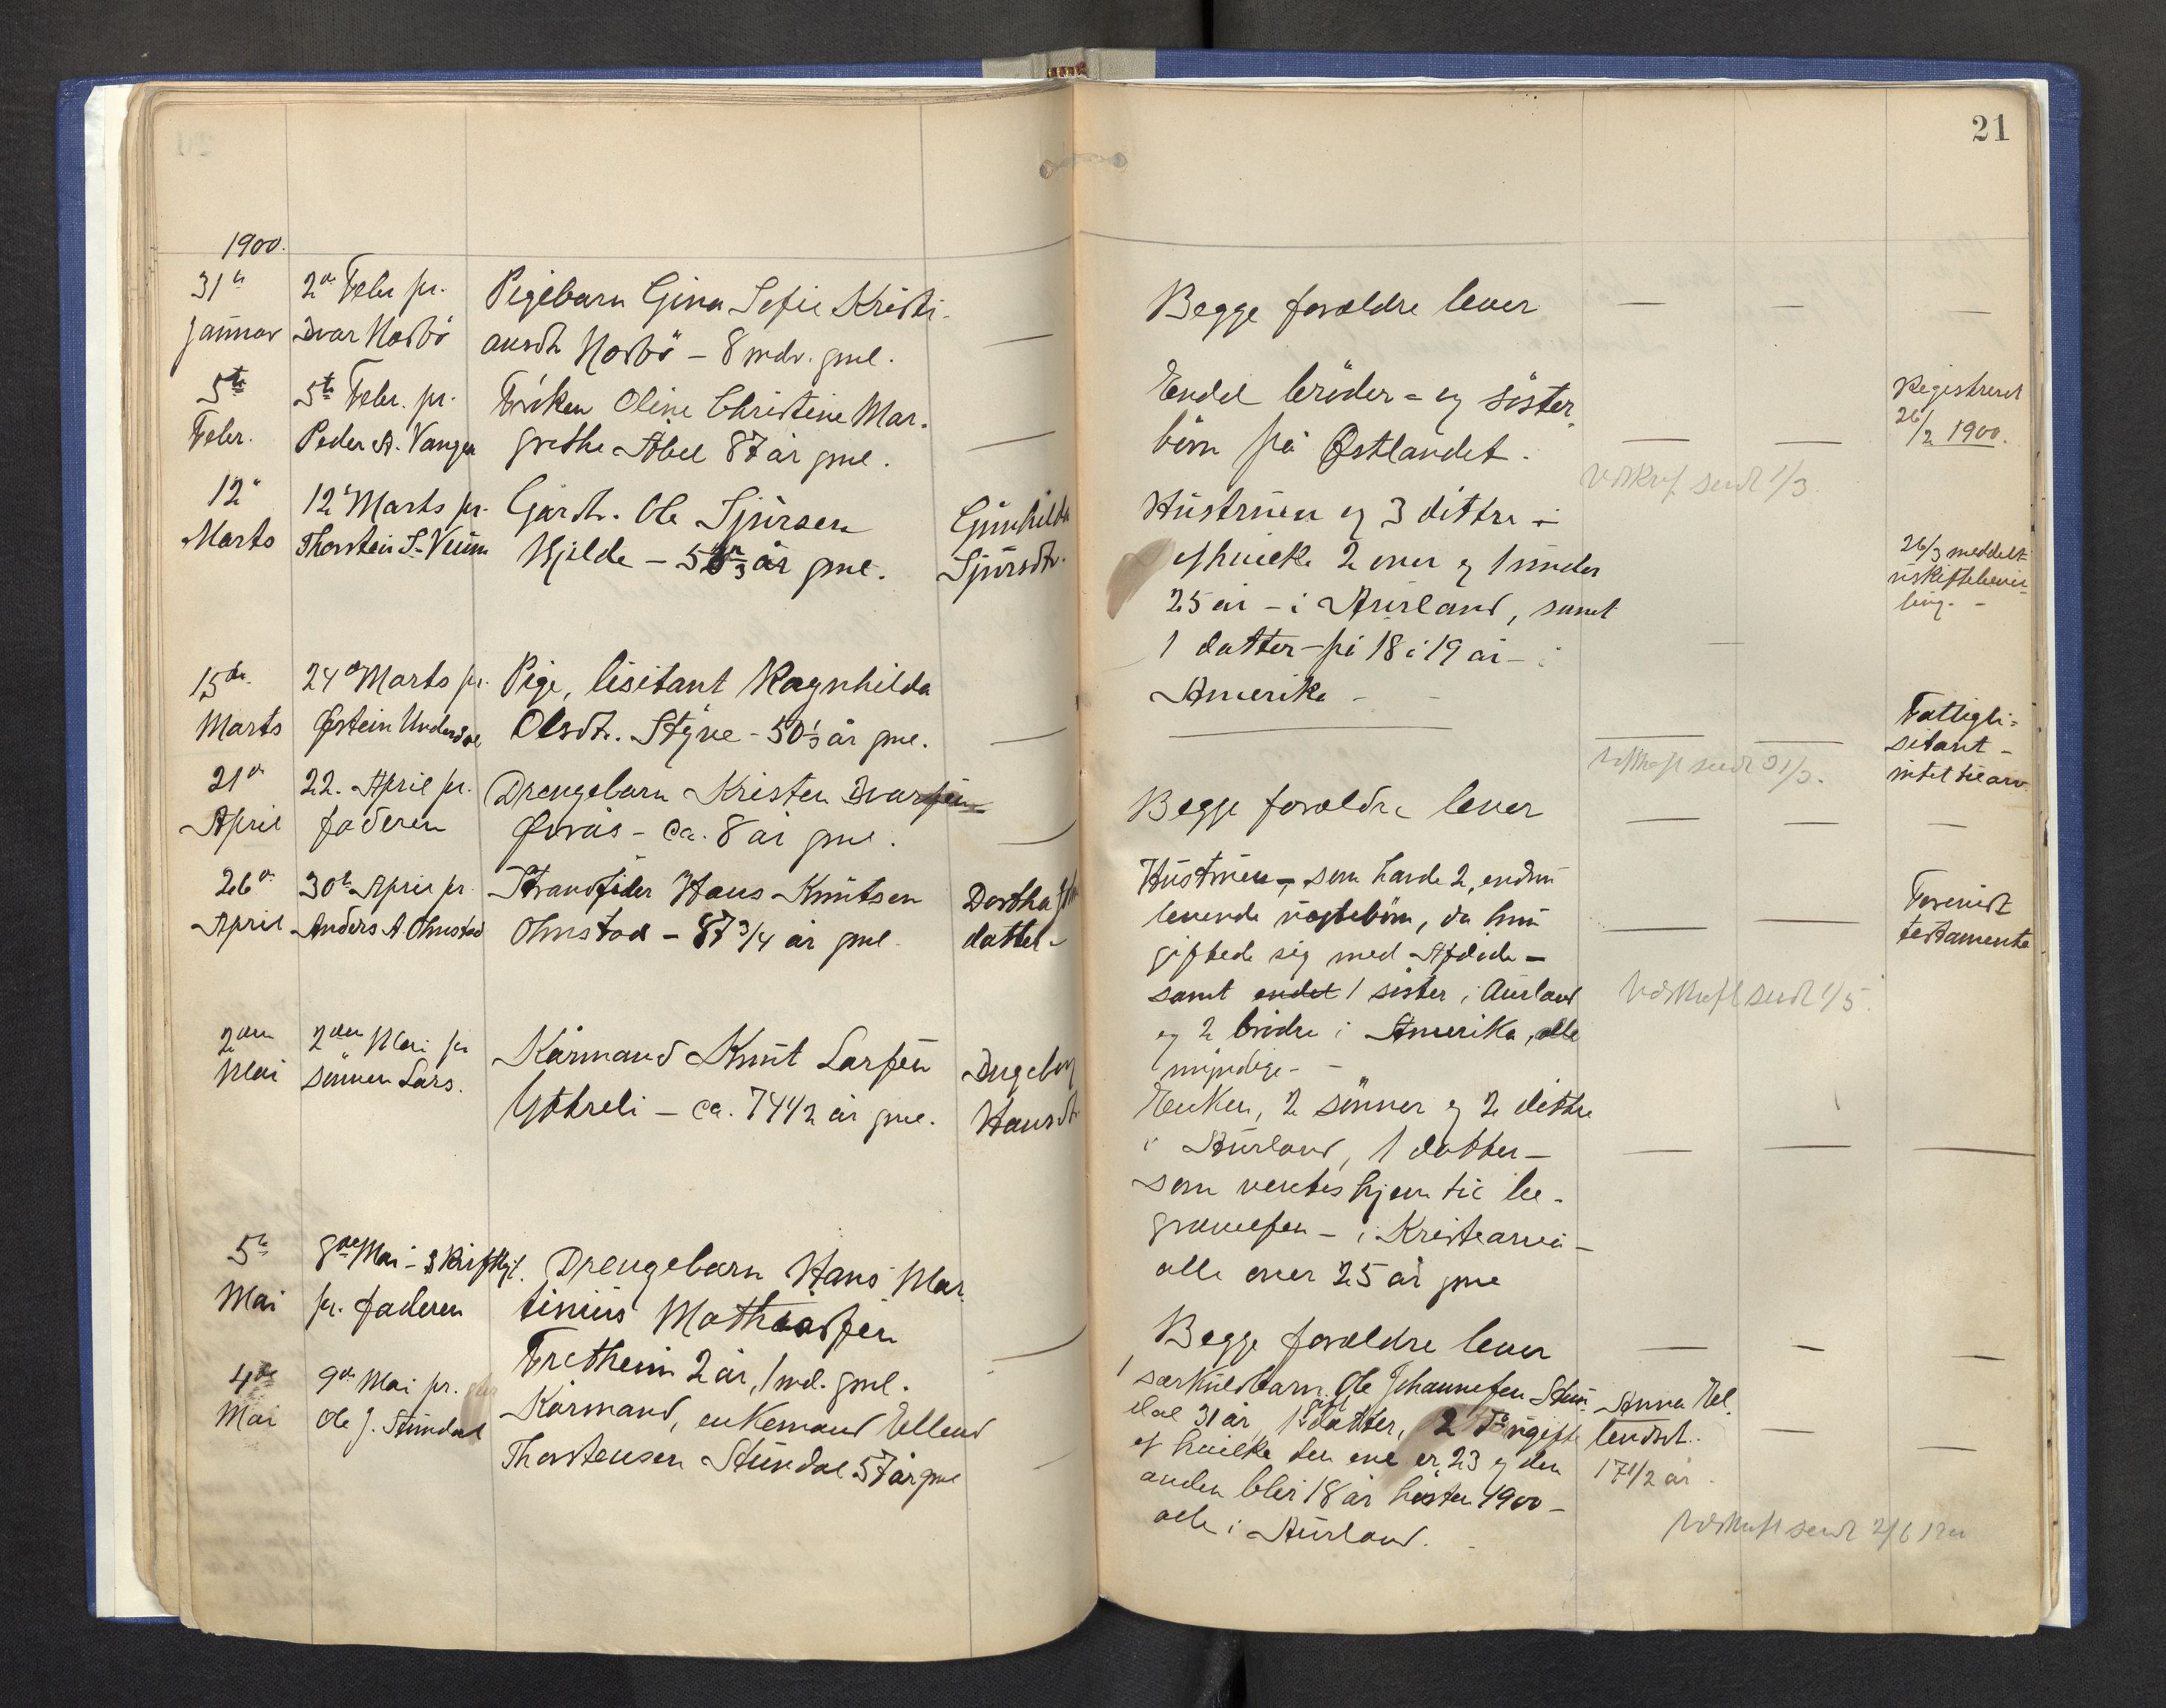 21
1900.
31te
Januar
2den Febr pr.
Ivar Nosbö
Pigebarn Gina Sofie Kristi-
ansdtr Nosbö – 8 mdr. gml.
Begge forældre lever
5te
Febr.
5te Febr. pr.
Peder A. Vangen
Fröken Oline Christine Mar-
grethe Abel 87 år gml.
Endel bröder- og söster
börn på Østlandet.
Registreret
26/2 1900.
sendt 1/3.
12te
Marts
12te Marts pr.
Thorstein S. Veum
Gårdb. Ole Sjursen
Hjelde – år gml.
Gunhilda
Sjursdtr.
Hustruen og 3 döttre –
af hvilke 2 over og 1 under
25 år – i Aurland, samt
1 datter – på 18 à 19 år – i
Amerika –
26/3 meddelt
uskiftebevil-
ling. –
15de
Marts
24de Marts pr.
Øistein Underdal
Pige, lisitant Ragnhilda
Olsdtr. Styve – 50 1/3 år gml.
sendt 31/3.
Fattigli-
sitant –
intet til arv
21de
April
22. April pr.
faderen
Drengebarn Kristen Ivarsen
Øvrås – ca. 8 år gml.
Begge forældre lever
26de
April
30te April pr.
Anders A. Ohnstad
Strandsider Hans Knutsen
Ohnstad – 87 3/4 år gml.
Dortha
datter
Hustruen – som havde 2, endnu
levende uægtebörn, da hun
giftede sig med Afdöde –
samt endel 1 söster i Aurland
og 2 brödre i Amerika, alle
myndige –
sendt 1/5.
Forenet
testamente
2den
Mai
2den Mai pr
sönnen Lars.
Kårmand Knut Larsen
Ytreli – ca. 74 1/2 år gml.
Ingeborg
Hansdtr
Enken, 2 sönner og 2 döttre
i Aurland, 1 datter –
som ventes hjem til be-
gravelsen – i Kristiania –
alle over 25 år gml
5te
Mai
8de Mai – skriftlig.
pr. faderen
Drengebarn Hans Mar-
tinius Mathiassen
Fretheim 2 år, 1 md. gml.
Begge forældre lever
4de
Mai
9de Mai pr.
Ole J. Stundal
Kårmand, enkemand Ellend
Thorstensen Stundal 57 år gml
1 særkuldbarn Ole Johannesen Stun-
dal 31 år, 1 gift datter, 2 do ugifte
af hvilke den ene er 23 og den
anden blir 18 år hösten 1900 –
alle i Aurland.
Anna El-
lendsdt.
17 1/2 år.
sendt 2/6 1900